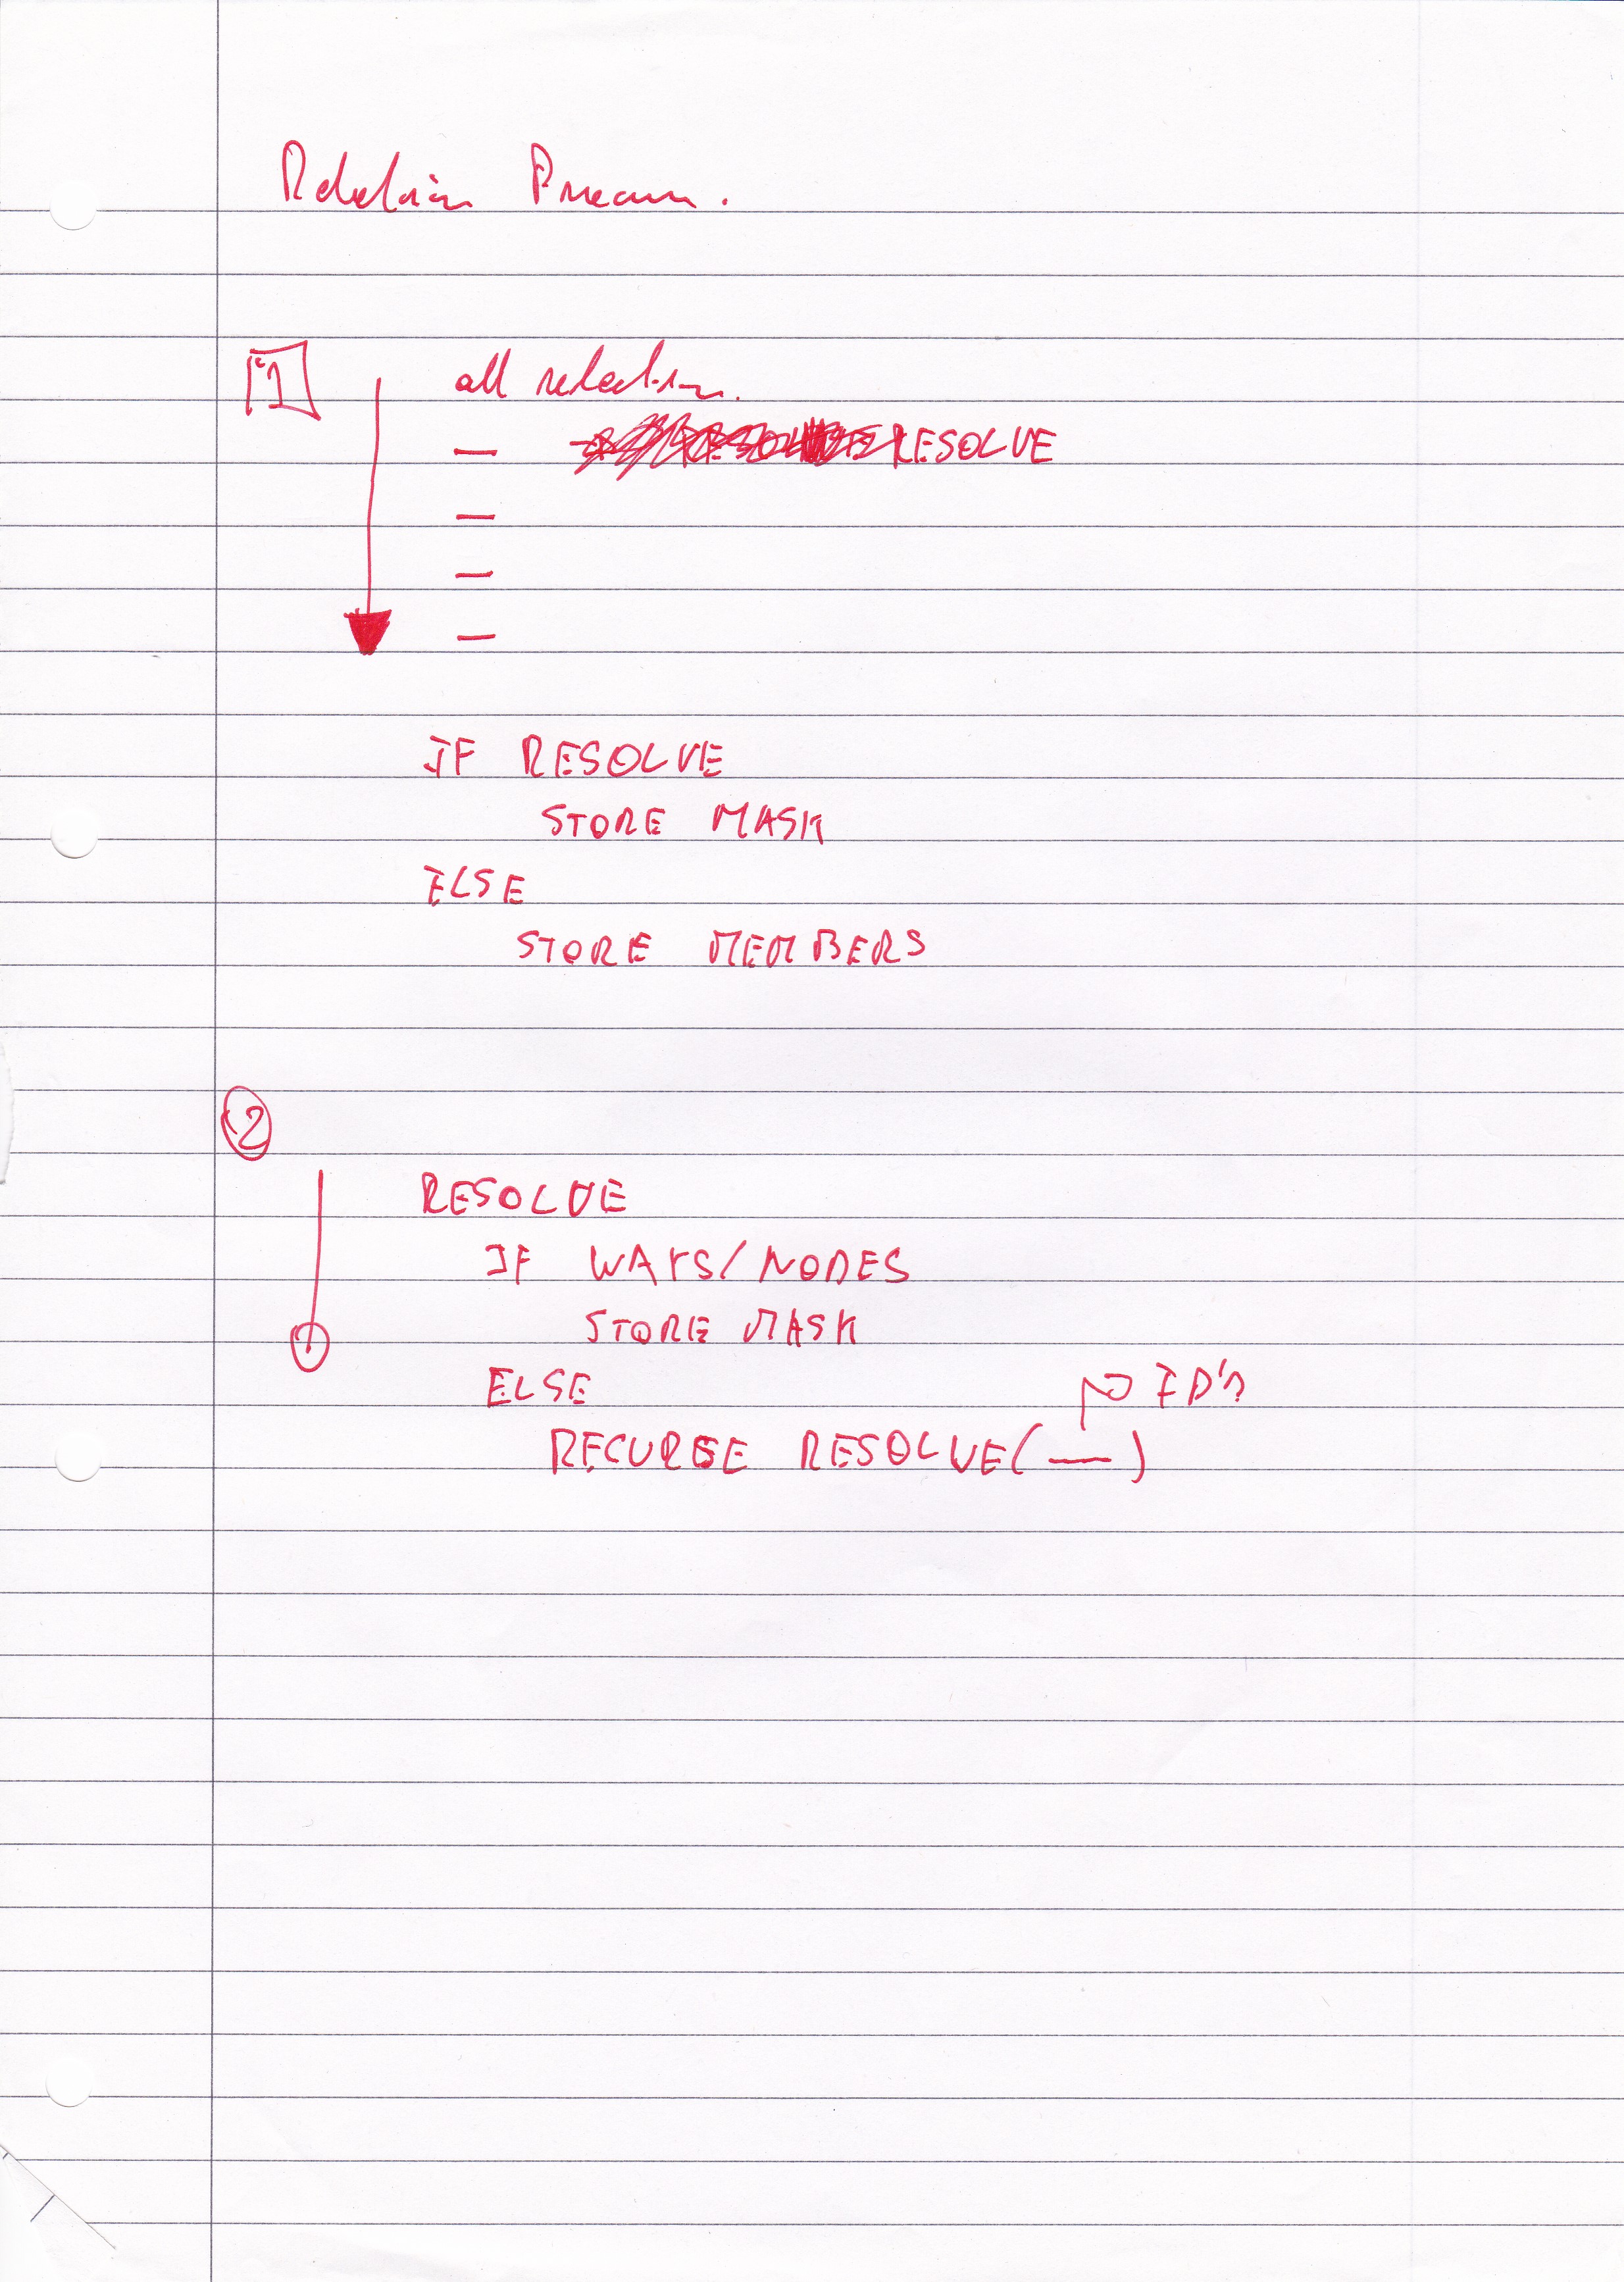 Relation Process.
1 all relations.
RESOLVE
IF RESOLVE
STORE MASK
ELSE
STORE MEMBERS
2
RESOLVE
IF WAYS/NODES
STORE MASK
ELSE
ID's
RECURSE RESOLVE( — )